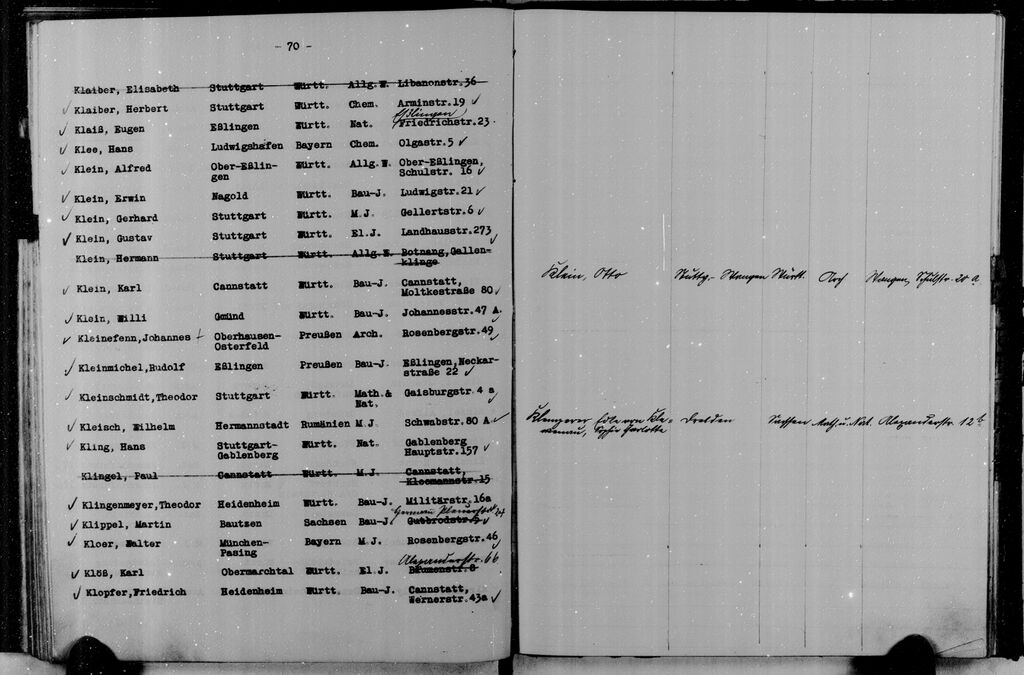 - 70 -
Klaiber, Elisabeth Stuttgart Württ. Allg.W. Libanonstr.36
Klaiber, Herbert Stuttgart Württ. Chem. Arminstr.19
Eßlingen
Klaiß, Eugen Eßlingen Württ. Nat. Friedrichstr.23
Klee, Hans Ludwigshafen Bayern Chem. Olgastr.5
Klein, Alfred Ober-Eßlin- Württ. Allg.W. Ober-Eßlingen,
gen Schulstr. 16
Klein, Erwin Nagold Württ. Bau-J. Ludwigstr.21
Klein, Gerhard Stuttgart Württ. M.J. Gellertstr.6
Klein, Gustav Stuttgart Württ. El.J. Landhausstr.273
Klein, Hermann Stuttgart Württ. Allg.W. Botnang,Gallen-
klinge
Klein, Karl Cannstatt Württ. Bau-J. Cannstatt,
Moltkestraße 80
Klein, Willi Gmünd Württ. Bau-J. Johannesstr.47 A.
Kleinefenn,Johannes Oberhausen- Preußen Arch. Rosenbergstr.49
Osterfeld
Kleinmichel,Rudolf Eßlingen Preußen Bau-J. Eßlingen,Neckar-
straße 22
Kleinschmidt,Theodor Stuttgart Württ. Math.& Gaisburgstr.4 a
Nat.
Kleisch, Wilhelm Hermannstadt Rumänien M.J. Schwabstr.80 A
Kling, Hans Stuttgart- Württ. Nat. Gablenberg
Gablenberg Hauptstr.157
Klingel, Paul Cannstatt Württ. M.J. Cannstatt,
Kleemannstr.15
Klingenmeyer,Theodor Heidenheim Württ. Bau-J. Militärstr.16a
Klippel, Martin Bautzen Sachsen Bau-J. Gutbrodstr.
Kloer, Walter München- Bayern M.J. Rosenbergstr.46
Pasing
Alexanderstr. 66
Klöß, Karl Obermarchtal Württ. El.J. Blumenstr.8
Klopfer,Friedrich Heidenheim Württ. Bau-J. Cannstatt,
Wernerstr.43a
Klein, Otto Stuttg.- Wangen Württ. Wangen, Schulstr. 20 a
Edle von Kle- Dresden Sachsen Math. u. Nat. Alexanderstr. 12